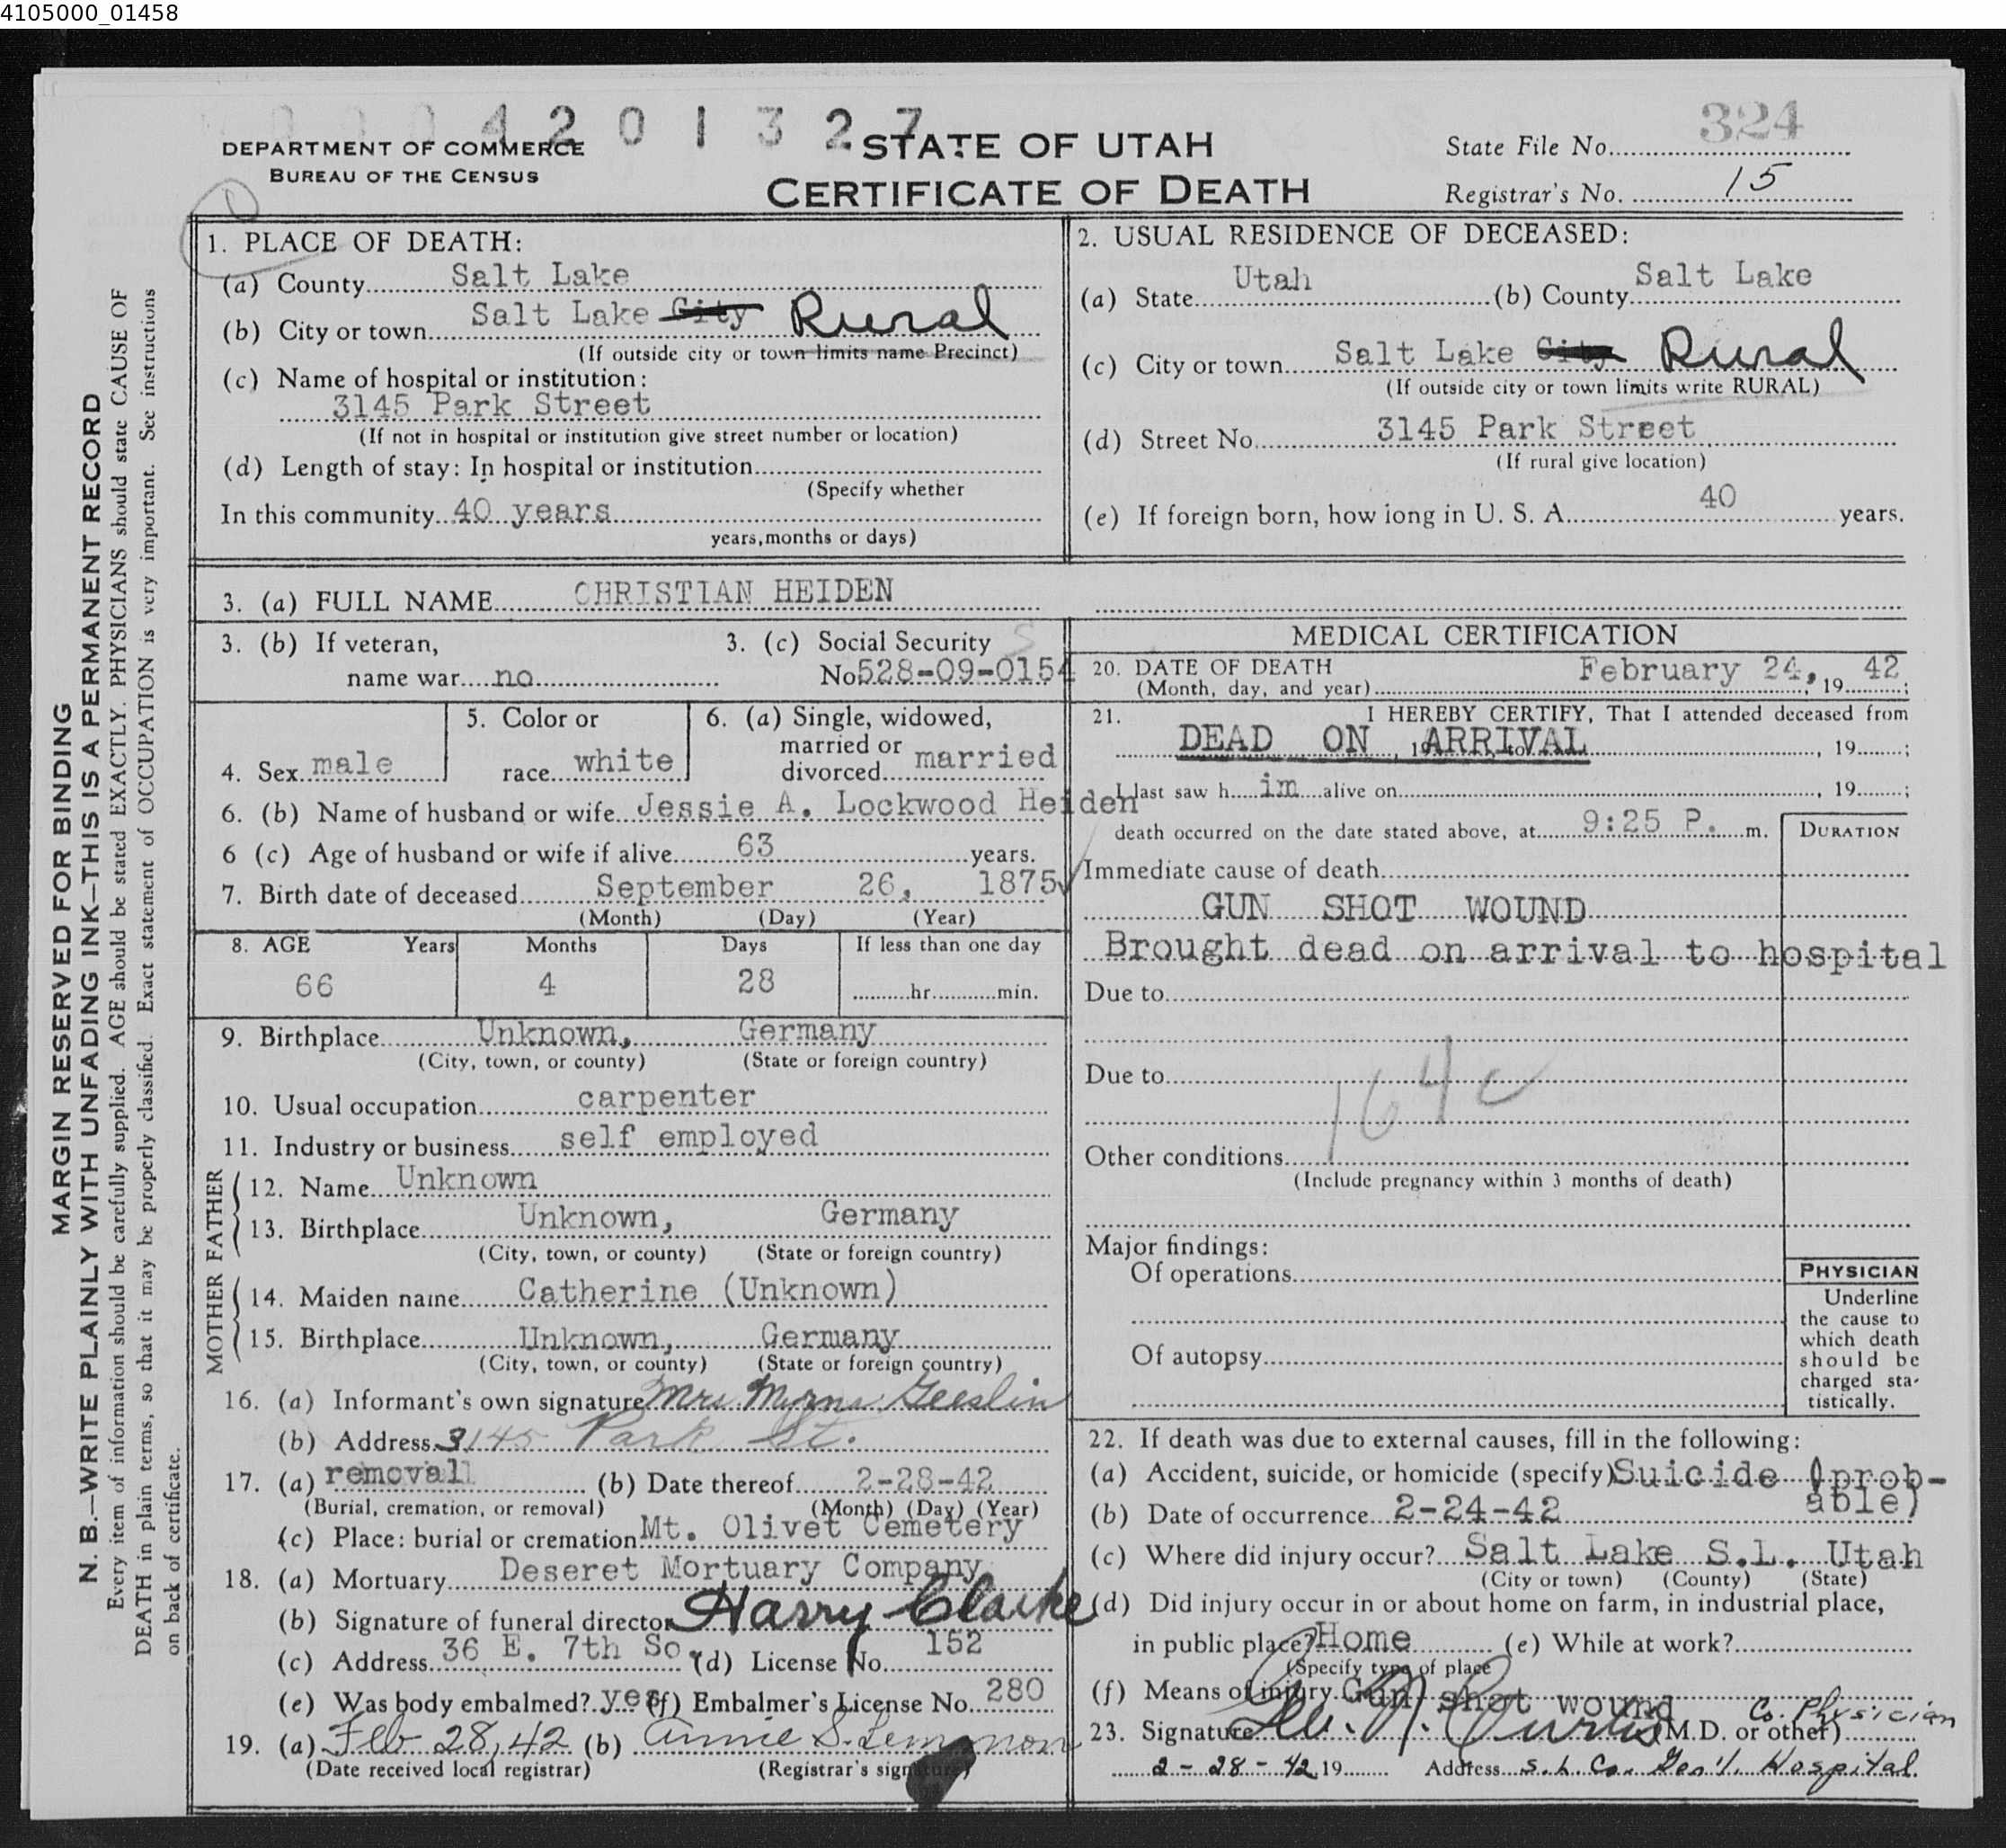 4105000_01458
4 2 0 1 3 2 7
DEPARTMENT OF COMMERCE
BUREAU OF THE CENSUS
STATE OF UTAH
CERTIFICATE OF DEATH
State File No. 324
Registrar's No. 15
MARGIN RESERVED FOR BINDING
N. B.—WRITE PLAINLY WITH UNFADING INK—THIS IS A PERMANENT RECORD
Every item of information should be carefully supplied. AGE should be stated EXACTLY. PHYSICIANS should state CAUSE OF
DEATH in plain terms, so that it may be properly classified. Exact statement of OCCUPATION is very important. See instructions
on back of certificate.
1. PLACE OF DEATH:
(a) County Salt Lake
(b) City or town Salt Lake City Rural
(If outside city or town limits name Precinct)
(c) Name of hospital or institution:
3145 Park Street
(If not in hospital or institution give street number or location)
(d) Length of stay: In hospital or institution
(Specify whether
In this community 40 years
years, months or days)
2. USUAL RESIDENCE OF DECEASED:
(a) State Utah (b) County Salt Lake
(c) City or town Salt Lake City Rural
(If outside city or town limits write RURAL)
(d) Street No. 3145 Park Street
(If rural give location)
(e) If foreign born, how long in U. S. A. 40 years.
3. (a) FULL NAME CHRISTIAN HEIDEN
3. (b) If veteran,
name war no
3. (c) Social Security
No 528-09-0154
4. Sex male
5. Color or
race white
6. (a) Single, widowed,
married or
divorced married
6. (b) Name of husband or wife Jessie A. Lockwood Heiden
6 (c) Age of husband or wife if alive 63 years.
7. Birth date of deceased September 26, 1875
(Month) (Day) (Year)
8. AGE Years Months Days If less than one day
66 4 28 hr. min.
9. Birthplace Unknown, Germany
(City, town, or county) (State or foreign country)
10. Usual occupation carpenter
11. Industry or business self employed
FATHER
12. Name Unknown
13. Birthplace Unknown, Germany
(City, town, or county) (State or foreign country)
MOTHER
14. Maiden name Catherine (Unknown)
15. Birthplace Unknown, Germany
(City, town, or county) (State or foreign country)
16. (a) Informant's own signature Mrs Myrna Geeslin
(b) Address 3145 Park St.
17. (a) removal (b) Date thereof 2-28-42
(Burial, cremation, or removal) (Month) (Day) (Year)
(c) Place: burial or cremation Mt. Olivet Cemetery
18. (a) Mortuary Deseret Mortuary Company
(b) Signature of funeral director Harry Clarke
(c) Address 36 E. 7th So. (d) License No. 152
(e) Was body embalmed? yes (f) Embalmer's License No. 280
19. (a) Feb 28, 42 (b) Annie S. Lemmon
(Date received local registrar) (Registrar's signature)
MEDICAL CERTIFICATION
20. DATE OF DEATH
(Month, day, and year) February 24, 19 42;
21. I HEREBY CERTIFY, That I attended deceased from
DEAD ON ARRIVAL, 19 ;
I last saw h im alive on , 19 ;
death occurred on the date stated above, at 9:25 P. m.
DURATION
Immediate cause of death
GUN SHOT WOUND
Brought dead on arrival to hospital
Due to
Due to
164c
Other conditions
(Include pregnancy within 3 months of death)
Major findings:
Of operations
Of autopsy
PHYSICIAN
Underline
the cause to
which death
should be
charged sta-
tistically.
22. If death was due to external causes, fill in the following:
(a) Accident, suicide, or homicide (specify) Suicide (prob-
able)
(b) Date of occurrence 2-24-42
(c) Where did injury occur? Salt Lake S.L. Utah
(City or town) (County) (State)
(d) Did injury occur in or about home on farm, in industrial place,
in public place? Home (e) While at work?
(Specify type of place)
(f) Means of injury Gun shot wound
23. Signature N. Curtis (M.D. or other) Co. Physician
2-28-42 19 Address S. L. Co. Gen'l. Hospital